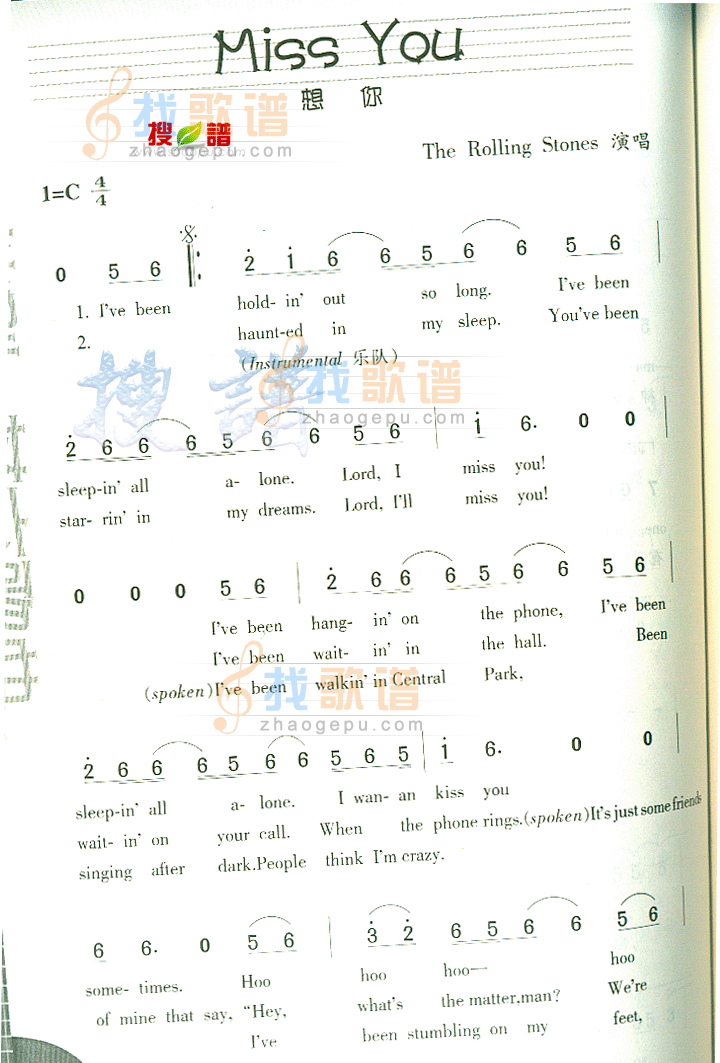 Miss You
想 你
找歌谱
搜 譜
zhaogepu.com
The Rolling Stones 演唱
1=C 4/4
0 5 6 2 i 6 6 5 6 6 5 6
1. I've been hold- in' out so long. I've been
2. haunt-ed in my sleep. You've been
(Instrumental 乐队)
搜 譜
找歌谱
zhaogepu.com
2 6 6 6 5 6 6 5 6 i 6. 0 0
sleep-in' all a- lone. Lord, I miss you!
star- rin' in my dreams. Lord, I'll miss you!
0 0 0 5 6 2 6 6 6 5 6 6 5 6
I've been hang- in' on the phone, I've been
I've been wait- in' in the hall. Been
(spoken)I've been walkin' in Central Park,
找歌谱
zhaogepu.com
2 6 6 6 5 6 6 5 6 5 i 6. 0 0
sleep-in' all a- lone. I wan- an kiss you
wait- in' on your call. When the phone rings.(spoken)It's just some friends
singing after dark.People think I'm crazy.
6 6. 0 5 6 3 2 6 5 6 6 5 6
some- times. Hoo hoo hoo— hoo
of mine that say, "Hey, what's the matter,man? We're
I've been stumbling on my feet,